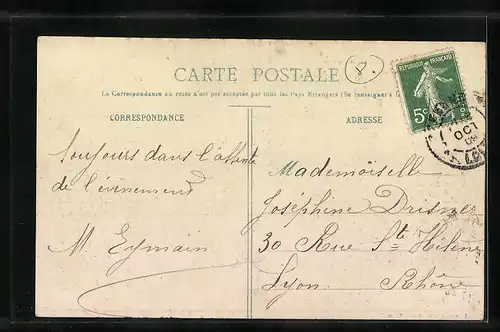 CARTE POSTALE
8.
La Correspondance au recto n'est pas acceptée par tous les Pays Étrangers (Se renseigner à
CORRESPONDANCE
ADRESSE
REPUBLIQUE FRANÇAISE
5c
OCT
Toujours dans l'attente
de l'évènement
M Eymain
Mademoiselle
Joséphine Drisner
30 Rue Ste Hélène
Lyon Rhône